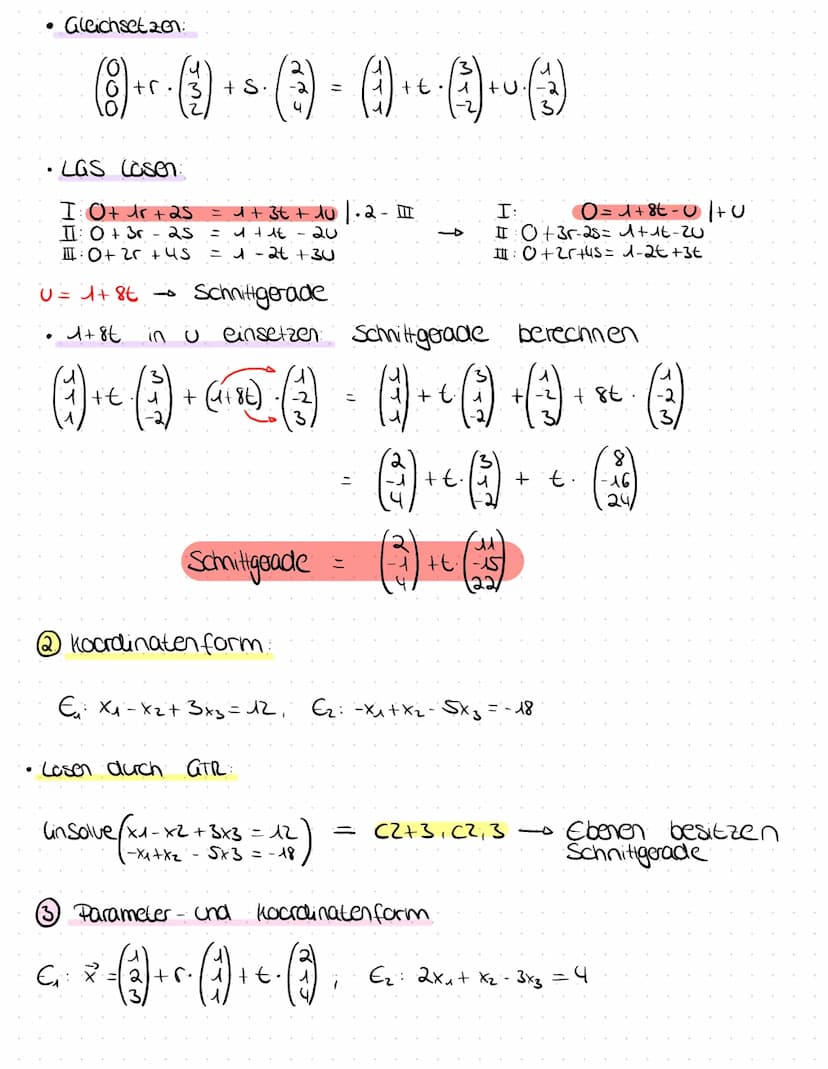 • Gleichsetzen:
(0 0 0) + r · (1 3 2) + s · (2 -2 4) = (1 1 1) + t · (3 1 -2) + u · (1 -2 3)
• LGS lösen:
I: 0 + 1r + 2s = 1 + 3t + 1u | · 2 - III I: 0 = 1 + 8t - u | + u
II: 0 + 3r - 2s = 1 + 1t - 2u → II: 0 + 3r - 2s = 1 + 1t - 2u
III: 0 + 2r + 4s = 1 - 2t + 3u III: 0 + 2r + 4s = 1 - 2t + 3t
u = 1 + 8t → Schnittgerade
• 1+8t in u einsetzen: Schnittgerade berechnen
(1 1 1) + t · (3 1 -2) + (1+8t) · (1 -2 3) = (1 1 1) + t · (3 1 -2) + (1 -2 3) + 8t · (1 -2 3)
= (2 -1 4) + t · (3 1 -2) + t · (8 -16 24)
Schnittgerade = (2 -1 4) + t · (11 -15 22)
② Koordinatenform:
E₁: x₁ - x₂ + 3x₃ = 12, E₂: -x₁ + x₂ - 5x₃ = -18
• Lösen durch GTR:
linSolve(x1 - x2 + 3x3 = 12 = c2+3, c2, 3 → Ebenen besitzen
-x1 + x2 - 5x3 = -18) Schnittgerade
③ Parameter- und Koordinatenform
E₁: x⃗ = (1 2 3) + r · (1 1 1) + t · (2 1 4) ; E₂: 2x₁ + x₂ - 3x₃ = 4